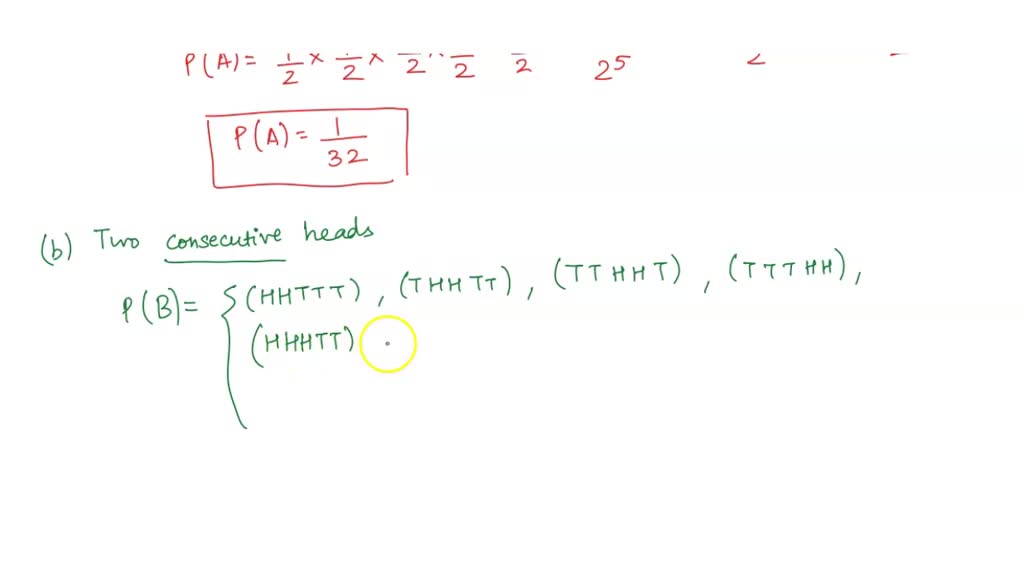 P(A) = 1/2 × 1/2 × 1/2 ·· 1/2 1/2 2^5 2
P(A) = 1/32
(b) Two consecutive heads
P(B) = { (HHTTT) , (THHTT) , (TTHHT) , (TTTHH) ,
(HHHTT)